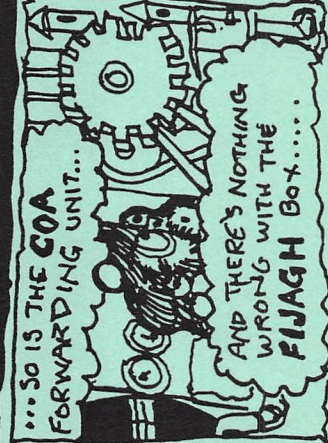 ...SO IS THE COA
FORWARDING UNIT...
AND THERE'S NOTHING
WRONG WITH THE
BOX.....